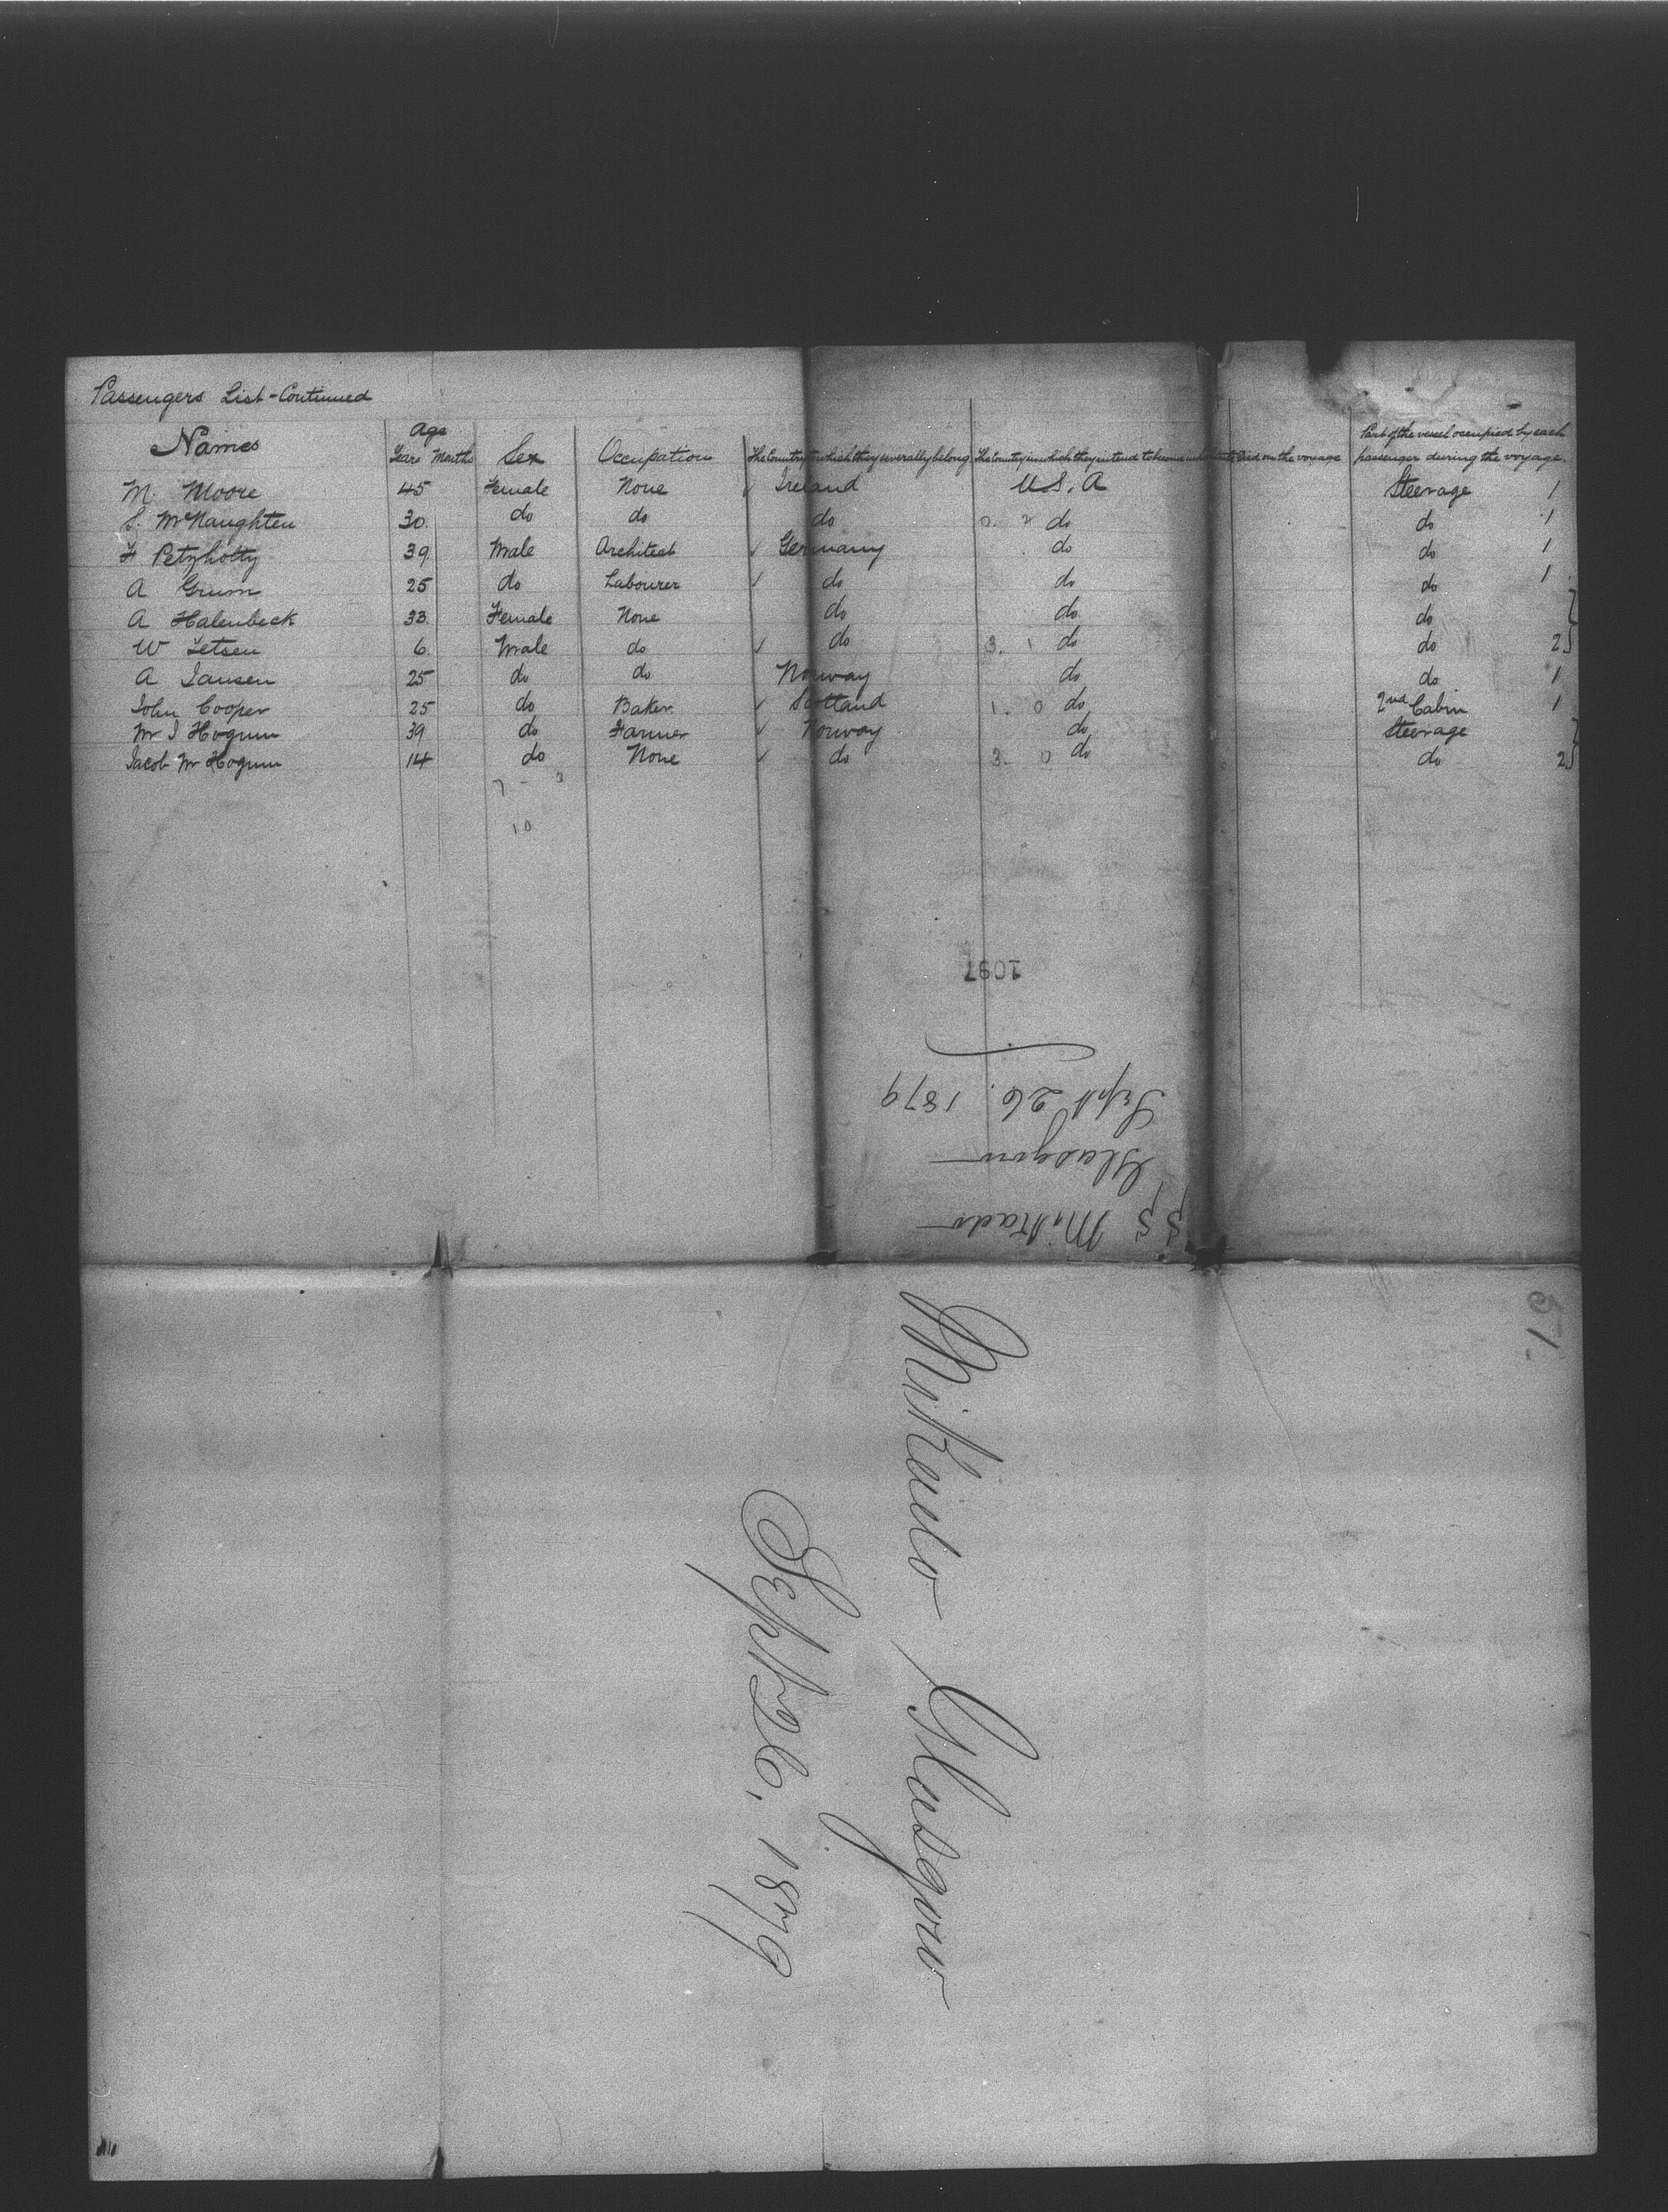 Passengers List - Continued
Names Age Years Months Sex Occupation The Country to which they severally belong The Country in which they intend to become inhabitants Died on the voyage Part of the vessel occupied by each passenger during the voyage.
M. Moore 45 Female None Ireland U.S.A Steerage 1
S. McNaughten 30 do do do do do 1
39 Male Architect Germany do do 1
A 25 do Labourer do do do 1
A Halenbeck 33 Female None do do do
W 6 Male do do 3. 1 do do 2
A Jansen 25 do do Norway do do 1
John Cooper 25 do Baker Scotland 1. 0 do 2nd Cabin 1
Mr J Hognm 39 do Farmer Norway do Steerage
Jacob Mr Hognm 14 do None do 3. 0 do do 2
7 - 3
10
1097
SS Mikado
Glasgow
Sept 26. 1879
51.
Mikado Glasgow
Sept 26, 1879